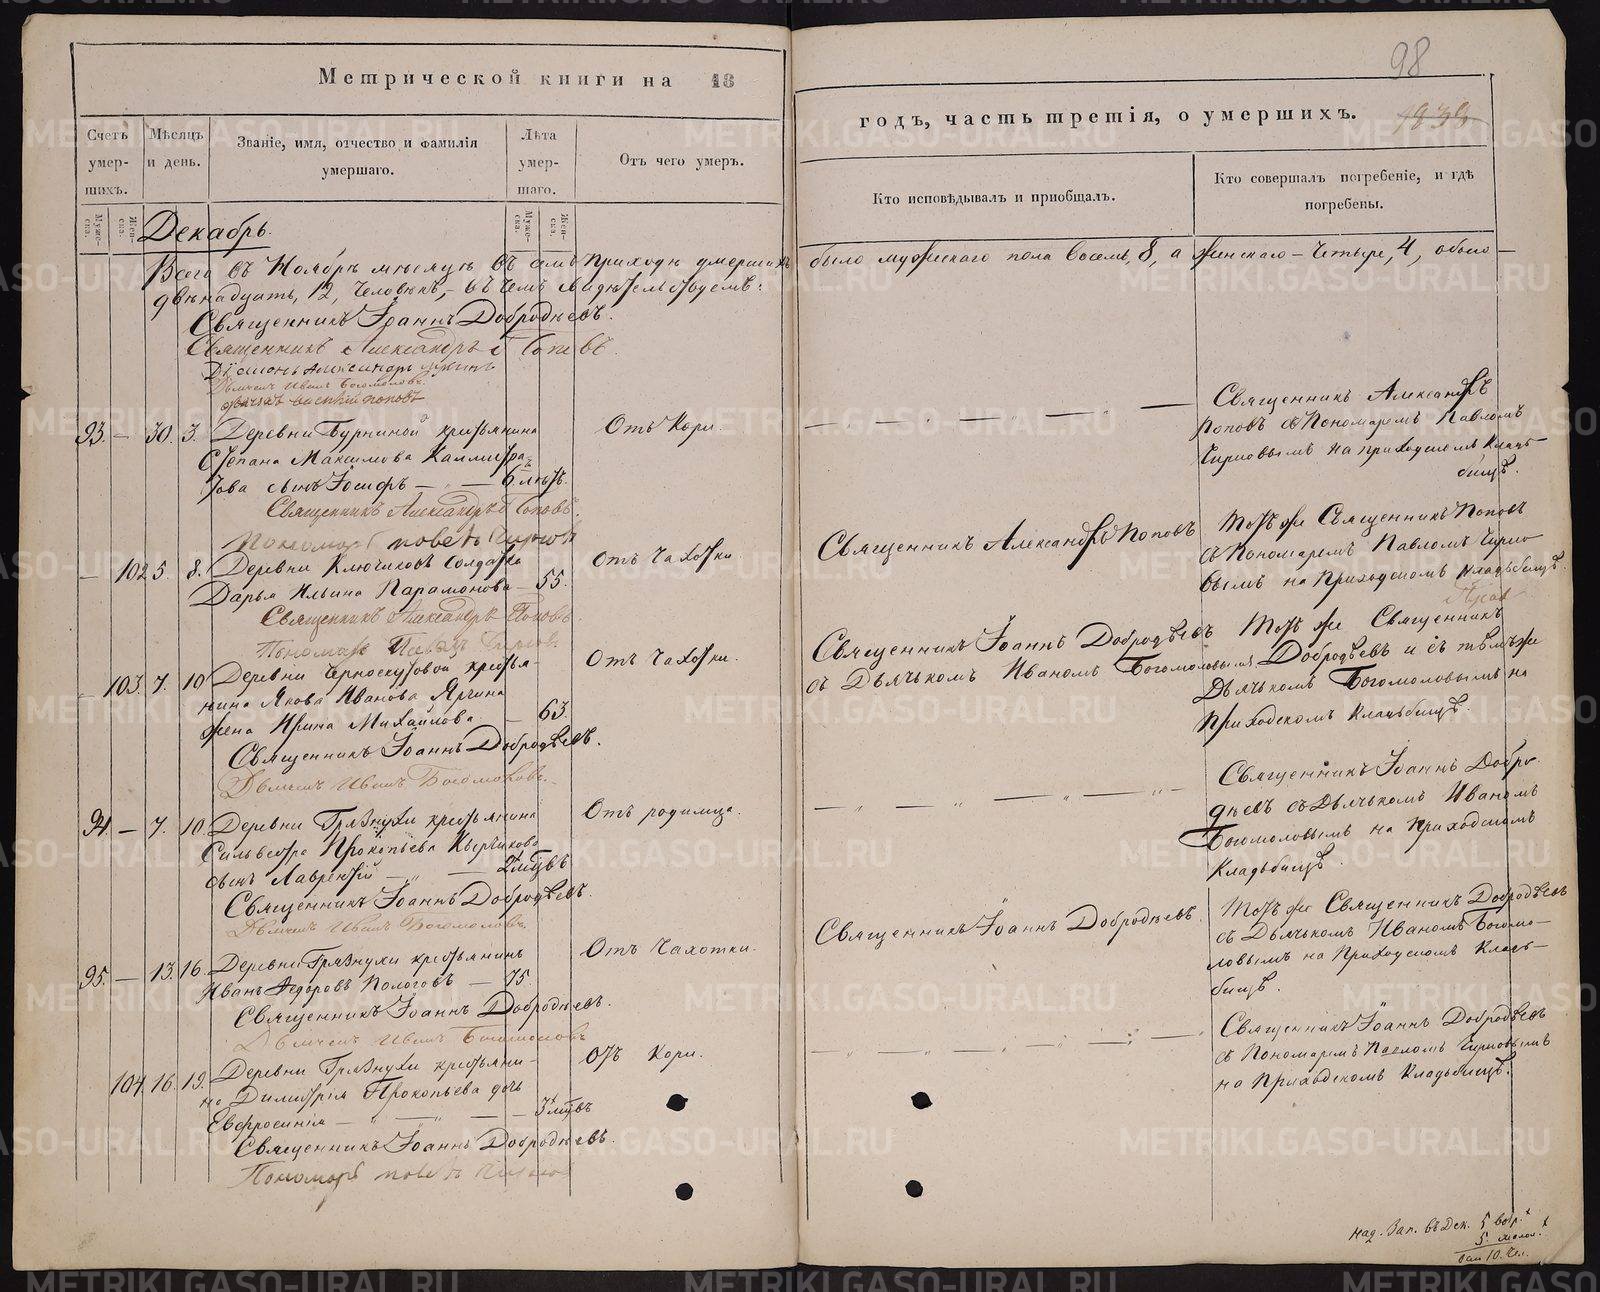 Метрической книги на 18
Счетъ умер-шихъ.
Мѣсяцъ и день.
Званіе, имя, отчество и фамилія умершаго.
Лѣта умер-шаго.
Отъ чего умеръ.
Муже-ска.
Жен-ска.
Муже-ска.
Жен-ска.
Декабрь.
Всего въ Ноябрѣ мѣсяцѣ въ семъ приходѣ умершихъ
двѣнадцать, 12, человѣкъ, въ чемъ свидѣтельствуемъ:
Священникъ Іоаннъ Добродѣевъ.
Священникъ Александръ Поповъ.
Діаконъ Александръ
Дьячекъ Иванъ Богомоловъ
93. — 30. 3. Деревни Буриной крестьянина
Степана Максимова
сынъ Іосифъ — „ — 6 лѣтъ.
Отъ Кори.
Священникъ Александръ Поповъ.
Пономарь Павелъ Чирковъ
— 102. 5. 8. Деревни Ключиковъ солдатка
Дарья Ильина Парамонова — 55.
Отъ Чахотки.
Священникъ Александръ Поповъ.
Пономарь Павелъ
— 103. 7. 10. Деревни Черноскутовой крестья-
нина Якова Иванова Яргина
жена Ирина Михайлова — 63.
Отъ Чахотки.
Священникъ Іоаннъ Добродѣевъ.
Дьячекъ Иванъ Богомоловъ.
94. — 7. 10. Деревни Грязнухи крестьянина
Сильвестра Прокопьева
сынъ Лаврентій — „ — 2 мѣсв
Отъ родимца.
Священникъ Іоаннъ Добродѣевъ.
Дьячекъ Иванъ Богомоловъ.
95. — 13. 16. Деревни Грязнухи крестьянинъ
Иванъ Ѳедоровъ Пологовъ — 75.
Отъ Чахотки.
Священникъ Іоаннъ Добродѣевъ.
Дьячекъ Иванъ Богомоловъ
104. 16. 19. Деревни Грязнухи крестьяни-
на Димитрія Прокопьева дочь
Евфросинія — „ — 3 мѣсв
Отъ Кори.
Священникъ Іоаннъ Добродѣевъ.
Пономарь Павелъ Чирковъ
98
годъ, часть третія, о умершихъ.
1838
Кто исповѣдывалъ и пріобщалъ.
Кто совершалъ погребеніе, и гдѣ погребены.
было мужескаго пола восемь, 8, а женскаго — четыре, 4, обоего —
Священникъ Александръ
Поповъ съ Пономаремъ Павломъ
Чирковымъ на приходскомъ Кладь-
бищѣ.
Священникъ Александръ Поповъ
Тотъ же Священникъ Поповъ
съ Пономаремъ Павломъ Чирко-
вымъ на Приходскомъ Кладьбищѣ.
Священникъ Іоаннъ Добродѣевъ
съ Дьячкомъ Иваномъ Богомоловымъ
Тотъ же Священникъ
Добродѣевъ и съ тѣмъ же
Дьячькомъ Богомоловымъ на
Приходскомъ Кладьбищѣ.
Священникъ Іоаннъ Добро-
дѣевъ съ Дьячькомъ Иваномъ
Богомоловымъ на Приходскомъ
Кладьбищѣ.
Священникъ Іоаннъ Добродѣевъ.
Тотъ же Священникъ Добродѣевъ
съ Дьячькомъ Иваномъ Богомо-
ловымъ на Приходскомъ Кладь-
бищѣ.
Священникъ Іоаннъ Добродѣевъ
съ Пономаремъ Павломъ Чирковымъ
на Приходскомъ Кладьбищѣ.
Над. Зап. въ Дек. 5 взр.
5. малол.
10. Чел.
METRIKI.GASO-URAL.RU